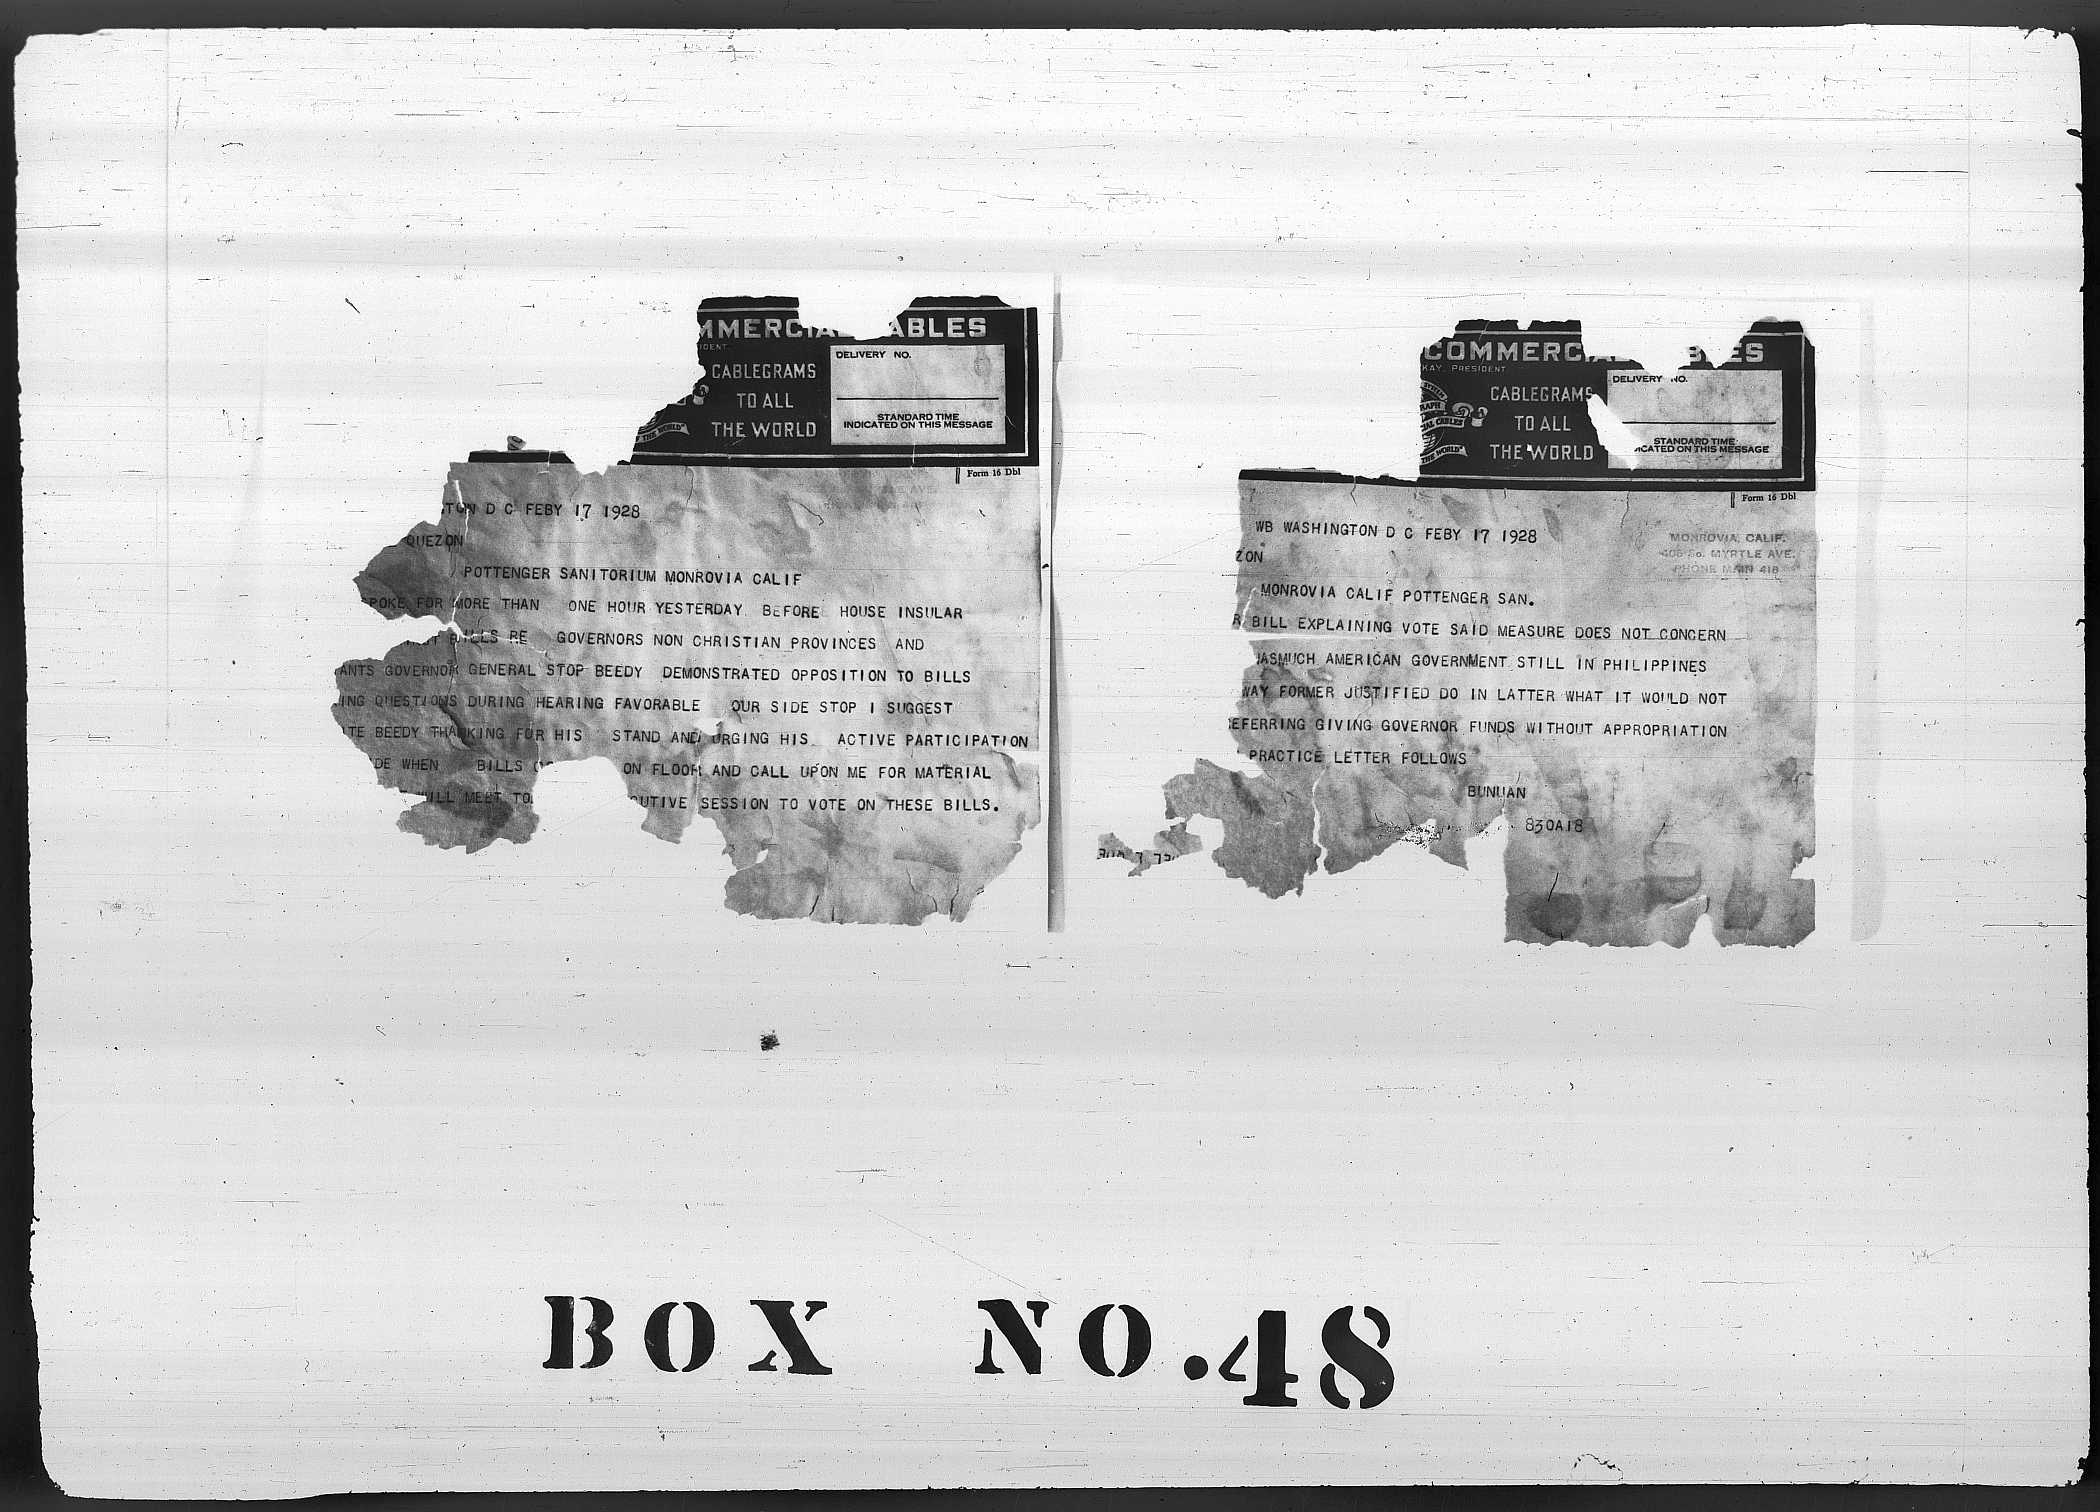 MMERCIAL ABLES
IDENT
CABLEGRAMS
TO ALL
THE WORLD
THE WORLD"
DELIVERY NO.
STANDARD TIME
INDICATED ON THIS MESSAGE
Form 16 Dbl
TON D C FEBY 17 1928
QUEZON
POTTENGER SANITORIUM MONROVIA CALIF
SPOKE FOR MORE THAN ONE HOUR YESTERDAY BEFORE HOUSE INSULAR
BILLS RE GOVERNORS NON CHRISTIAN PROVINCES AND
ANTS GOVERNOR GENERAL STOP BEEDY DEMONSTRATED OPPOSITION TO BILLS
ING QUESTIONS DURING HEARING FAVORABLE OUR SIDE STOP I SUGGEST
TE BEEDY THANKING FOR HIS STAND AND URGING HIS ACTIVE PARTICIPATION
DE WHEN BILLS ON FLOOR AND CALL UPON ME FOR MATERIAL
WILL MEET TO CUTIVE SESSION TO VOTE ON THESE BILLS.
COMMERCIAL BLES
KAY, PRESIDENT
CABLEGRAMS
TO ALL
THE WORLD
THE WORLD"
DELIVERY NO.
STANDARD TIME
ICATED ON THIS MESSAGE
Form 16 Dbl
WB WASHINGTON D C FEBY 17 1928
MONROVIA, CALIF.
406 So. MYRTLE AVE.
PHONE MAIN 418
ZON
MONROVIA CALIF POTTENGER SAN.
R BILL EXPLAINING VOTE SAID MEASURE DOES NOT CONCERN
ASMUCH AMERICAN GOVERNMENT STILL IN PHILIPPINES
WAY FORMER JUSTIFIED DO IN LATTER WHAT IT WOULD NOT
EFERRING GIVING GOVERNOR FUNDS WITHOUT APPROPRIATION
PRACTICE LETTER FOLLOWS
BUNUAN
830A18
BOX NO.48